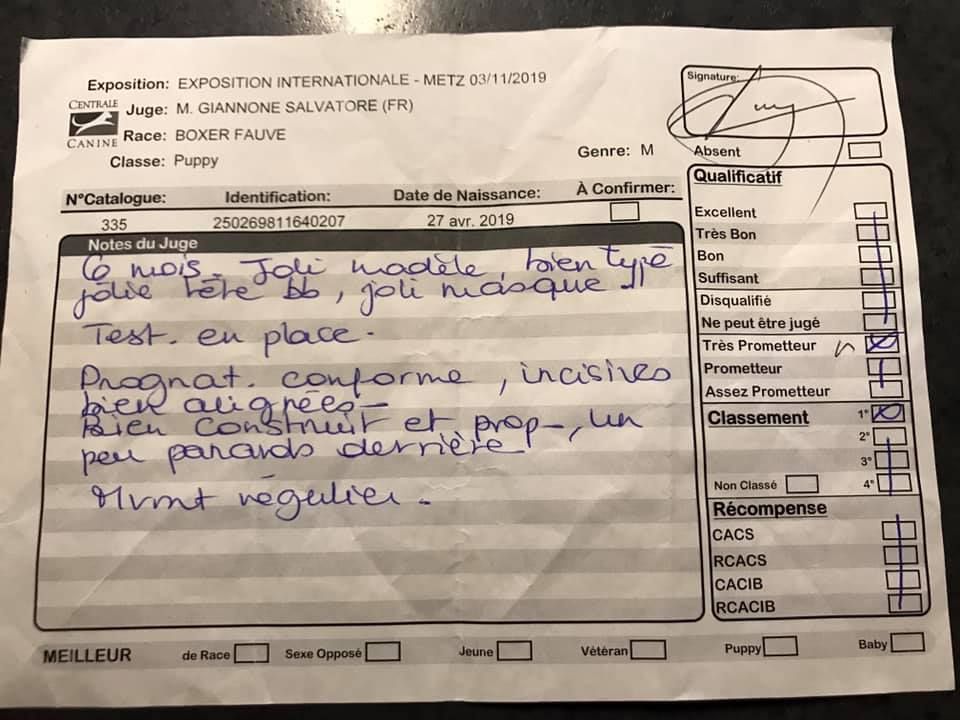 Exposition: EXPOSITION INTERNATIONALE - METZ 03/11/2019
CENTRALE
CANINE
Juge: M. GIANNONE SALVATORE (FR)
Race: BOXER FAUVE
Classe: Puppy
Genre: M
Signature:
Absent
N°Catalogue: Identification: Date de Naissance: À Confirmer:
335 250269811640207 27 avr. 2019
Notes du Juge
6 mois. Joli modèle, bien typé
jolie tête bb, joli masque
Test. en place.
Prognat. conforme, incisives
bien alignées-
Bien construit et prop-, un
peu panards derrière
Mvmt régulier.
Qualificatif
Excellent
Très Bon
Bon
Suffisant
Disqualifié
Ne peut être jugé
Très Prometteur
Prometteur
Assez Prometteur
Classement 1°
2°
3°
Non Classé 4°
Récompense
CACS
RCACS
CACIB
RCACIB
MEILLEUR de Race Sexe Opposé Jeune Vétéran Puppy Baby